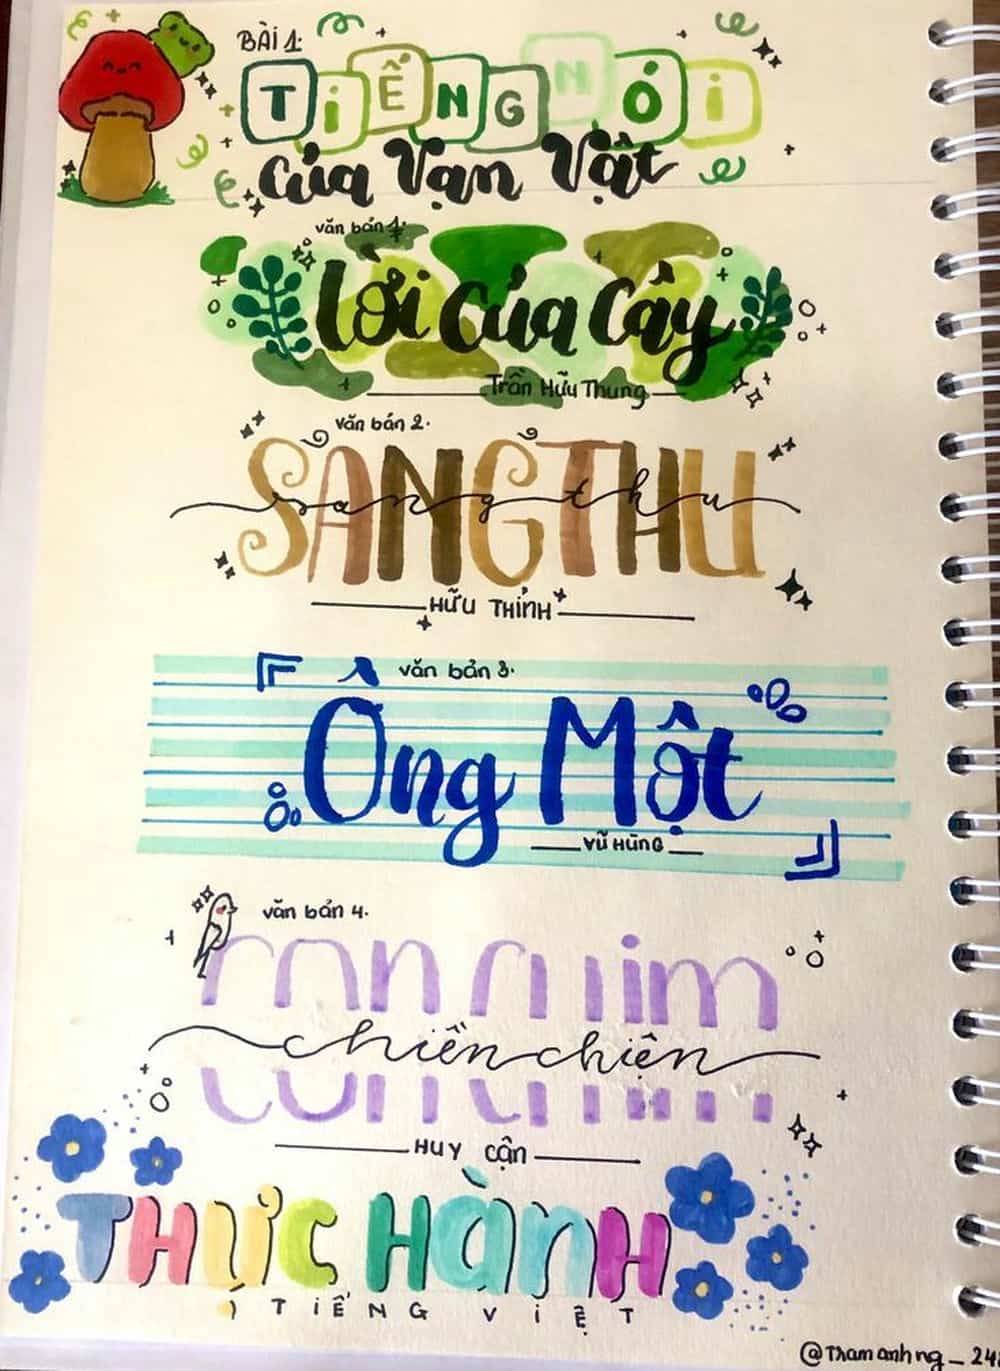 BÀI 1:
TiẾNG NÓi
của Vạn Vật
văn bản 1:
Lời Của Cây
Trần Hữu Thung
văn bản 2.
SANG THU
sang thu
HỮU THỈNH
văn bản 3.
Ông Một
VŨ HÙNG
văn bản 4.
con chim
chiền chiện
HUY CẬN
THỰC HÀNH
TiẾNG ViỆT
@Thamanhng_24